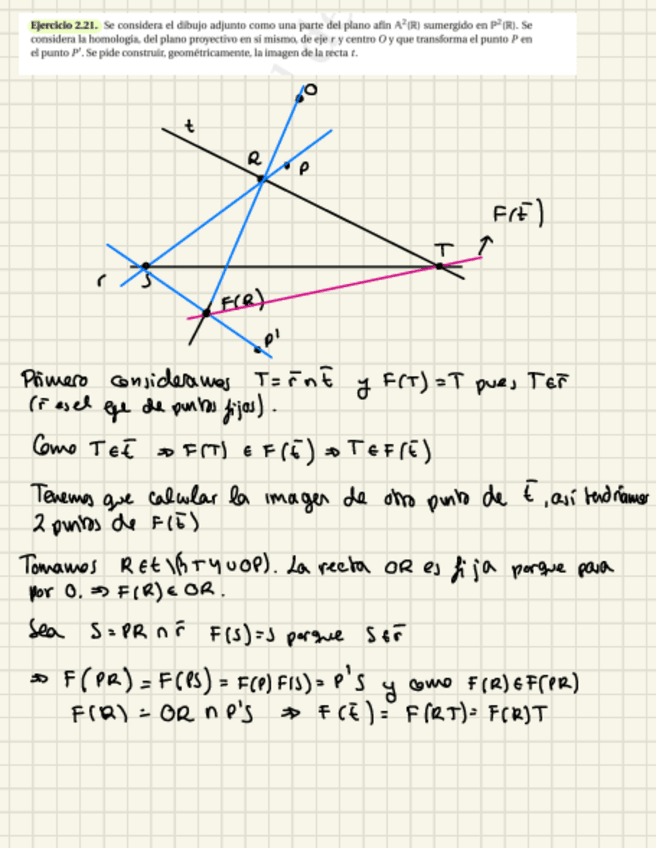 Ejercicio 2.21. Se considera el dibujo adjunto como una parte del plano afín A²(R) sumergido en P²(R). Se
considera la homología, del plano proyectivo en sí mismo, de eje r y centro O y que transforma el punto P en
el punto P'. Se pide construir, geométricamente, la imagen de la recta t.
O
t
R
P
F(t̄)
T
r
S
F(R)
P'
Primero consideramos T = r̄ ∩ t̄ y F(T) = T pues T ∈ r̄
(r̄ es el eje de puntos fijos).
Como T ∈ t̄ ⇒ F(T) ∈ F(t̄) ⇒ T ∈ F(t̄)
Tenemos que calcular la imagen de otro punto de t̄, así tendríamos
2 puntos de F(t̄)
Tomamos R ∈ t \ ({T} ∪ OP). La recta OR es fija porque pasa
por O. ⇒ F(R) ∈ OR.
Sea S = PR ∩ r̄ F(S) = S porque S ∈ r̄
⇒ F(PR) = F(PS) = F(P) F(S) = P'S y como F(R) ∈ F(PR)
F(R) = OR ∩ P'S ⇒ F(t̄) = F(RT) = F(R)T